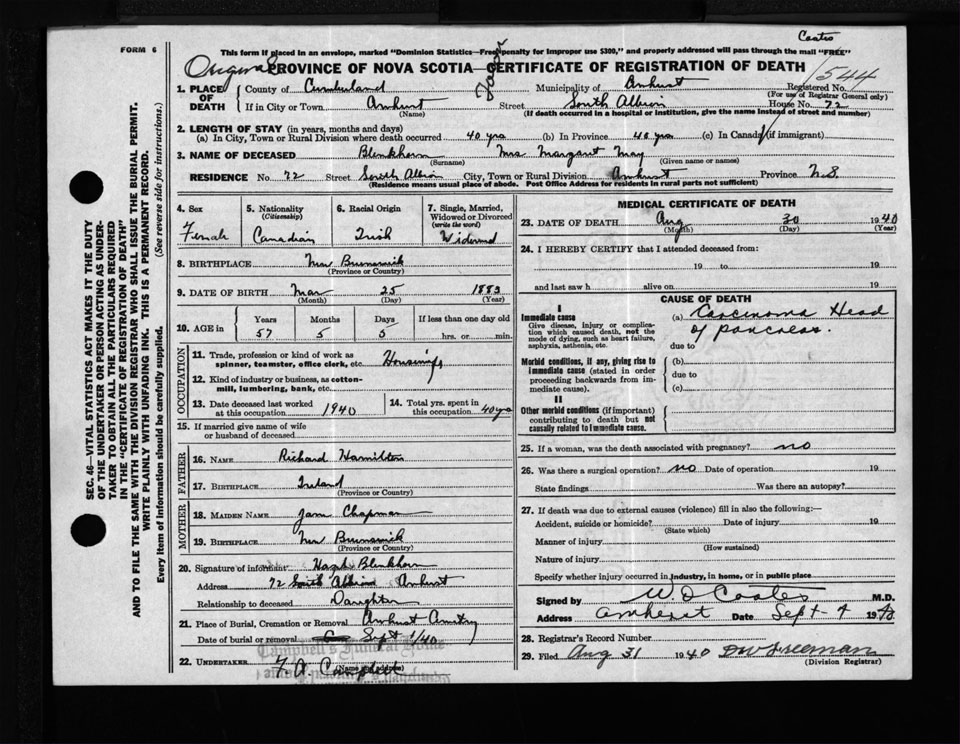 FORM 6
Coates
This form if placed in an envelope, marked "Dominion Statistics—Free, penalty for improper use $300," and properly addressed will pass through the mail "FREE"
Original PROVINCE OF NOVA SCOTIA—CERTIFICATE OF REGISTRATION OF DEATH
1544
1. PLACE OF DEATH County of Cumberland Municipality of Amherst Registered No.
(For use of Registrar General only)
If in City or Town Amherst Street South Albion House No. 72
(Name) (If death occurred in a hospital or institution, give the name instead of street and number)
2. LENGTH OF STAY (in years, months and days)
(a) In City, Town or Rural Division where death occurred 40 yrs (b) In Province 40 yrs (c) In Canada (if immigrant)
3. NAME OF DECEASED Blenkhorn Mrs Margaret May
(Surname) (Given name or names)
RESIDENCE No. 72 Street South Albion City, Town or Rural Division Amherst Province N.S
(Residence means usual place of abode. Post Office Address for residents in rural parts not sufficient)
4. Sex Female
5. Nationality (Citizenship) Canadian
6. Racial Origin Irish
7. Single, Married, Widowed or Divorced (write the word) Widowed
8. BIRTHPLACE New Brunswick
(Province or Country)
9. DATE OF BIRTH Mar 25 1883
(Month) (Day) (Year)
10. AGE in Years Months Days If less than one day old
57 5 5 hrs. or min.
OCCUPATION
11. Trade, profession or kind of work as spinner, teamster, office clerk, etc. Housewife
12. Kind of industry or business, as cotton-mill, lumbering, bank, etc.
13. Date deceased last worked at this occupation 1940
14. Total yrs. spent in this occupation 40 yrs
15. If married give name of wife or husband of deceased
FATHER
16. NAME Richard Hamilton
17. BIRTHPLACE Ireland
(Province or Country)
MOTHER
18. MAIDEN NAME Jane Chapman
19. BIRTHPLACE New Brunswick
(Province or Country)
20. Signature of informant Hazel Blenkhorn
Address 72 South Albion Amherst
Relationship to deceased Daughter
21. Place of Burial, Cremation or Removal Amherst
Date of burial or removal Sept 1/40
Campbell's Funeral Home
22. UNDERTAKER F. A. Campbell
(Name and address)
MEDICAL CERTIFICATE OF DEATH
23. DATE OF DEATH Aug 30 1940
(Month) (Day) (Year)
24. I HEREBY CERTIFY that I attended deceased from:
19 to 19
and last saw h alive on 19
CAUSE OF DEATH
I
Immediate cause
Give disease, injury or complication which caused death, not the mode of dying, such as heart failure, asphyxia, asthenia, etc.
(a) Carcinoma Head of pancreas.
due to
Morbid conditions, if any, giving rise to immediate cause (stated in order proceeding backwards from immediate cause).
(b)
due to
(c)
II
Other morbid conditions (if important) contributing to death but not causally related to immediate cause.
25. If a woman, was the death associated with pregnancy? no
26. Was there a surgical operation? no Date of operation 19
State findings Was there an autopsy?
27. If death was due to external causes (violence) fill in also the following:—
Accident, suicide or homicide? Date of injury 19
(State which)
Manner of injury
(How sustained)
Nature of injury
Specify whether injury occurred in industry, in home, or in public place
Signed by W. D Coates M.D.
Address Amherst Date Sept-4 1940
28. Registrar's Record Number
29. Filed Aug 31 1940 Freeman
(Division Registrar)
SEC. 46—VITAL STATISTICS ACT MAKES IT THE DUTY
OF THE UNDERTAKER OR PERSON ACTING AS UNDER-
TAKER TO OBTAIN ALL THE PARTICULARS REQUIRED
IN THE "CERTIFICATE OF REGISTRATION OF DEATH"
AND TO FILE THE SAME WITH THE DIVISION REGISTRAR WHO SHALL ISSUE THE BURIAL PERMIT.
WRITE PLAINLY WITH UNFADING INK. THIS IS A PERMANENT RECORD.
Every item of information should be carefully supplied. (See reverse side for instructions.)